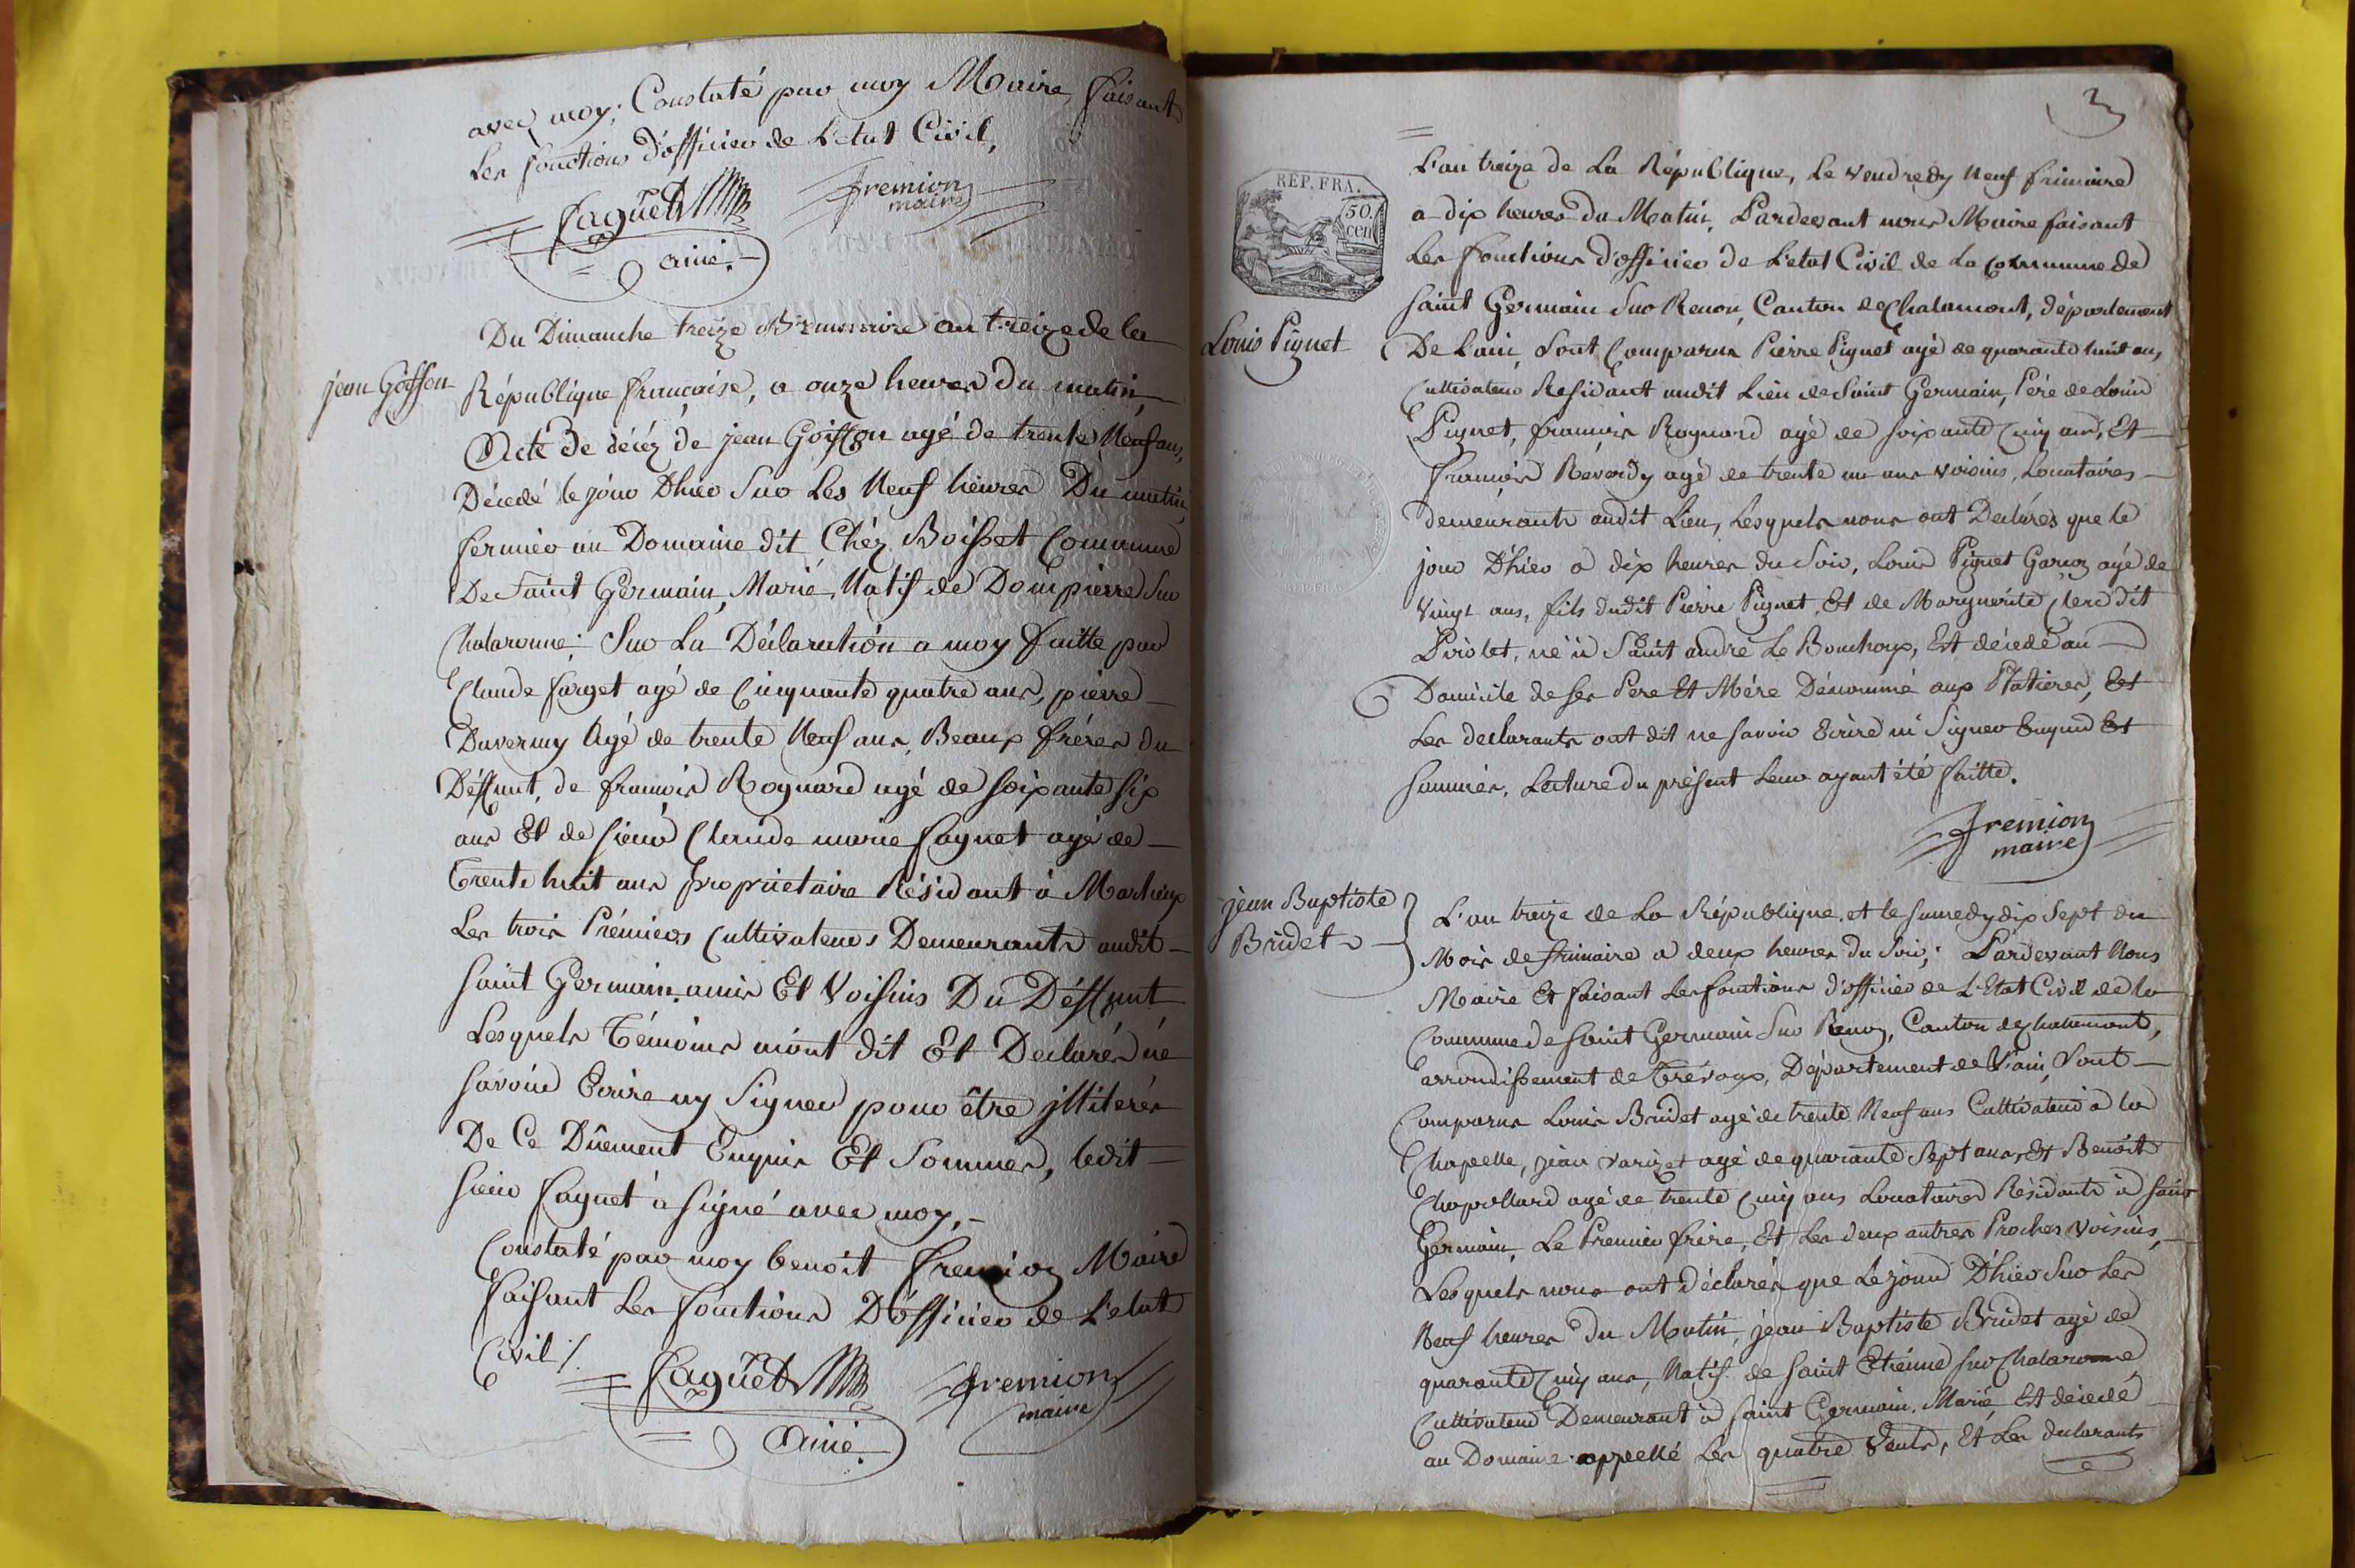 avec moy; Constaté par moy Maire, faisant
Les fonctions d'officier de L'etat Civil,
faguet
fremion
maire
ainé.
Du Dimanche treize Brumaire an treize de la
jean Goiffon
République françoise, a onze heures du matin,
Acte de décéz de jean Goiffon agé de trente Neuf ans,
Décedé le jour Dhier Sur Les Neuf héures Du matin,
fermier au Domaine dit Chéz Boisset Commune
De Saint Germain, Marié, Natif de Dompierre Sur
Chalaronne; Sur La Déclaration a moy faitte par
Claude farget agé de Cinquante quatre ans, piérre
Duvernuy Agé de trente Neuf ans, Beaux fréres du
Déffunt, de françois Rognard agé de soixante six
ans Et de sieur Claude marie faguet agé de
Trente huit ans propriétaire Résidant à Marlieux
Les trois Prémiers Cultivateurs Demeurants audit
Saint Germain, amis Et Voisins Du Déffunt
Lesquels Témoins m'ont dit Et Declarés né
savoir Ecrire ny Signer pour être jllitérés
De Ce Dûement Enquis Et Sommés, ledit
sieur faguet à signé avec moy,
Constaté par moy benoit fremion Maire
faisant Les fonctions D'officier de L'etat
Civil ./.
faguet
fremion
maire
Ainé.
3
REP. FRA.
50.
cen
L'an treize de La République, Le vendredy neuf frimaire
a dix heures du Matin, Pardevant nous Maire faisant
Les fonctions d'officier de L'etat Civil de La Commune de
Saint Germain Sur Renon, Canton de Chalamont, département
Louis Piguet
De L'ain, Sont Comparus Pierre Piguet agé de quarante huit ans,
Cultivateur Residant audit Lieu de Saint Germain, Pére de Louis
Piguet, françois Rognard agé de soixante Cinq ans, Et
françois Réverdy agé de trente un ans voisins, Locataires
demeurants audit Lieu, Lesquels nous ont Déclarés que le
jour D'hier a dix heures du Soir, Louis Piguet Garçon agé de
Vingt ans, fils dudit Pierre Piguet, Et de Marguerite Clerc dit
Pirolet, né à Saint andré Le Bouchoux, Est décedé au
Domicile de ses Pere Et Mére Dénommé aux Platieres, Et
Les declarants ont dit ne savoir Ecrire ni Signer Enquis Et
sommés, Lecture du présent Leur ayant été faitte.
fremion
maire
jean Baptiste
Bridet
L'an treize de La République, et le samedy dix Sept du
Mois de frimaire a deux heures du Soir; Pardevant Nous
Maire Et faisant Les fonctions d'officier de L'Etat Civil de la
Commune de Saint Germain Sur Renon, Canton de Chalamont,
arrondissement de Trévoux, Département de L'ain, Sont
Comparus Louis Bridet agé de trente Neuf ans Cultivateur à la
Chapelle, jean agé de quarante Sept ans, Et Benoit
Chapollard agé de trente Cinq ans Locataires Résidants à Saint
Germain, Le Premier frére, Et Les deux autres Proches Voisins,
Lesquels nous ont Déclarés que Le jour D'hier Sur Les
Neuf heures Du Matin, jean Baptiste Bridet agé de
quarante Cinq ans, Natif de Saint Etiénne sur Chalaronne,
Cultivateur Demeurant à Saint Germain, Marié, Est décedé
au Domaine appellé Les quatre Vents, Et Les declarants